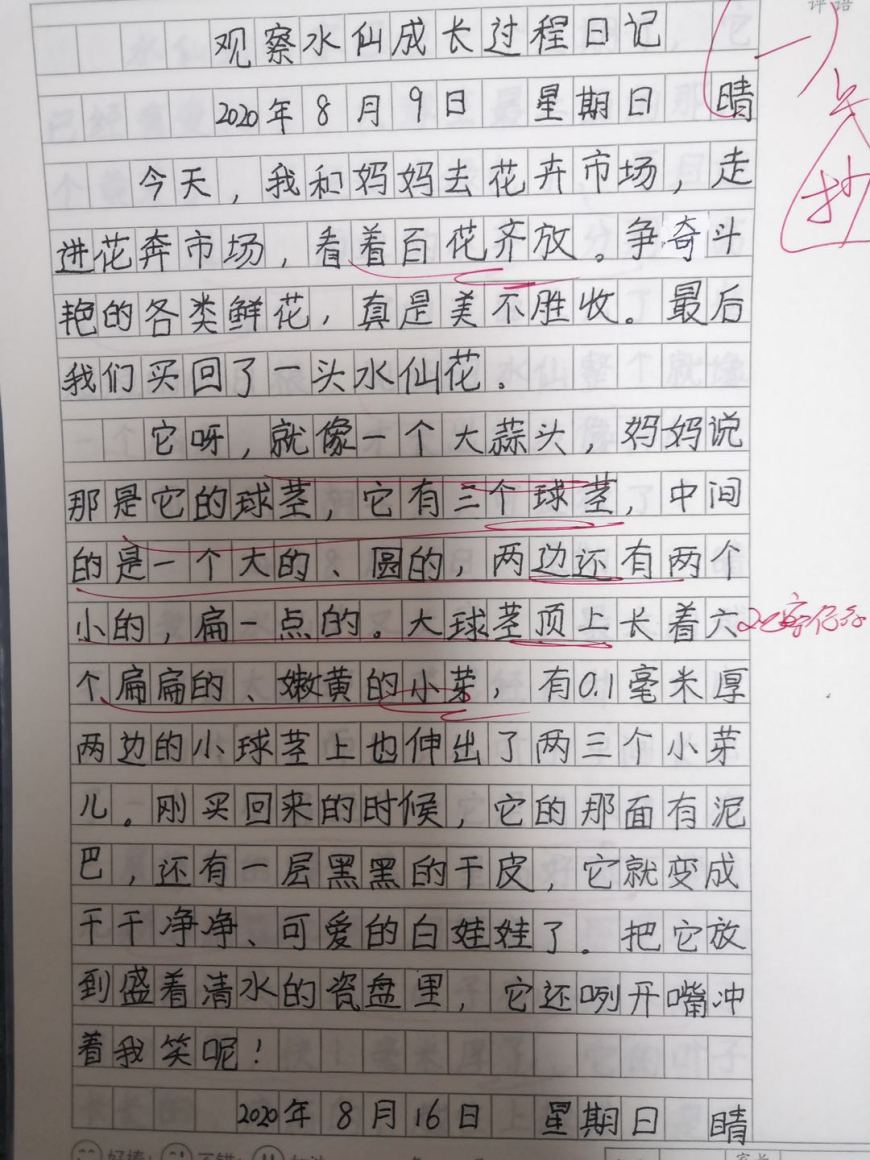 观察水仙成长过程日记
2020年8月9日 星期日 晴
今天，我和妈妈去花卉市场，走
进花奔市场，看着百花齐放。争奇斗
艳的各类鲜花，真是美不胜收。最后
我们买回了一头水仙花。
它呀，就像一个大蒜头，妈妈说
那是它的球茎，它有三个球茎，中间
的是一个大的、圆的，两边还有两个
小的，扁一点的。大球茎顶上长着六
个扁扁的、嫩黄的小芽，有0.1毫米厚
两边的小球茎上也伸出了两三个小芽
儿。刚买回来的时候，它的那面有泥
巴，还有一层黑黑的干皮，它就变成
干干净净、可爱的白娃娃了。把它放
到盛着清水的瓷盘里，它还咧开嘴冲
着我笑呢！
2020年8月16日 星期日 晴
评语
(一)
抄